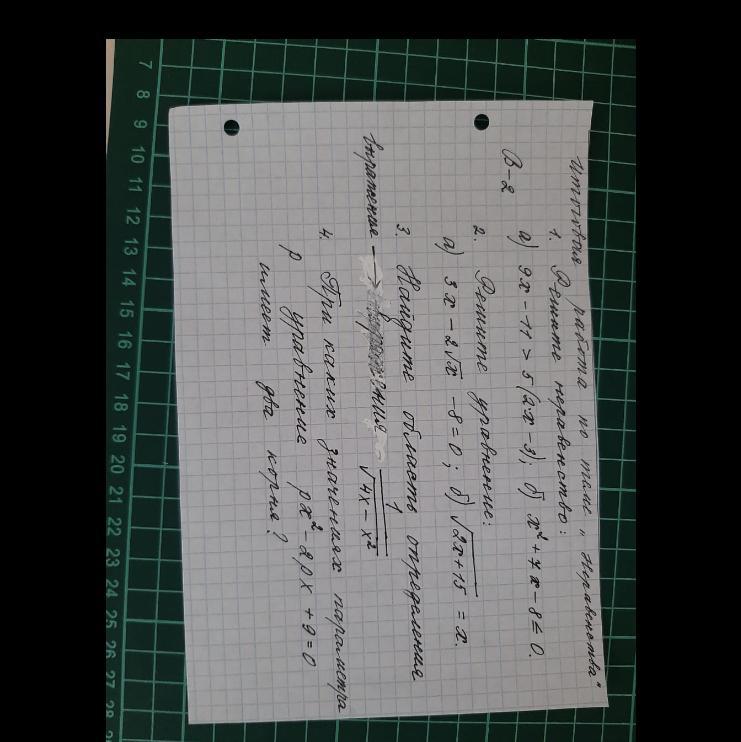 Итоговая работа по теме „Неравенства"
В-2
1. Решите неравенство:
а) 9x - 11 > 5(2x - 3); б) x² + 7x - 8 ≤ 0.
2. Решите уравнение:
а) 3x - 2√x - 8 = 0; б) √(2x + 15) = x.
3. Найдите область определения
выражение → 1/√(4x - x²)
4. При каких значениях параметра
p уравнение px² - 2px + 9 = 0
имеет два корня?
7 8 9 10 11 12 13 14 15 16 17 18 19 20 21 22 23 24 25 26 27 28